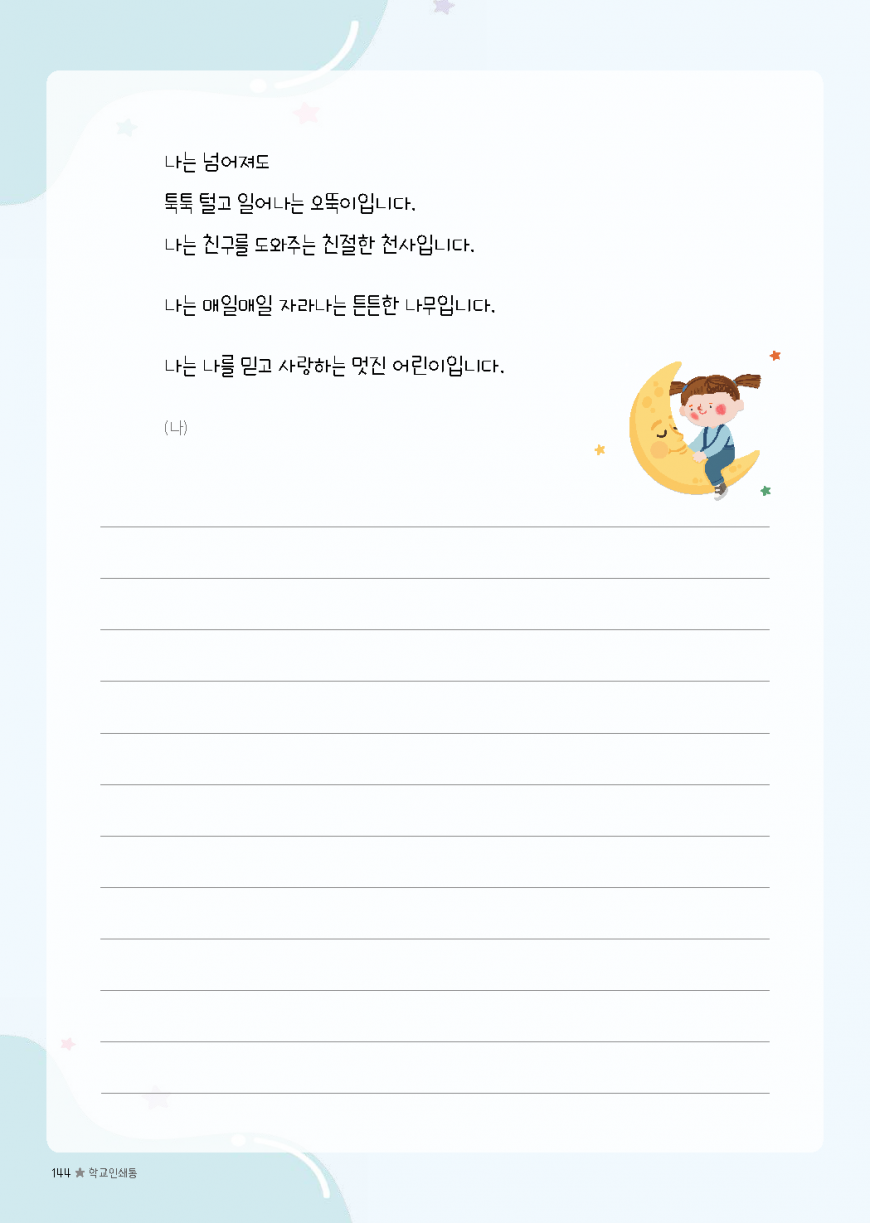 나는 넘어져도
툭툭 털고 일어나는 오뚝이입니다.
나는 친구를 도와주는 친절한 천사입니다.
나는 매일매일 자라나는 튼튼한 나무입니다.
나는 나를 믿고 사랑하는 멋진 어린이입니다.
(나)
144 ★ 학교인쇄통